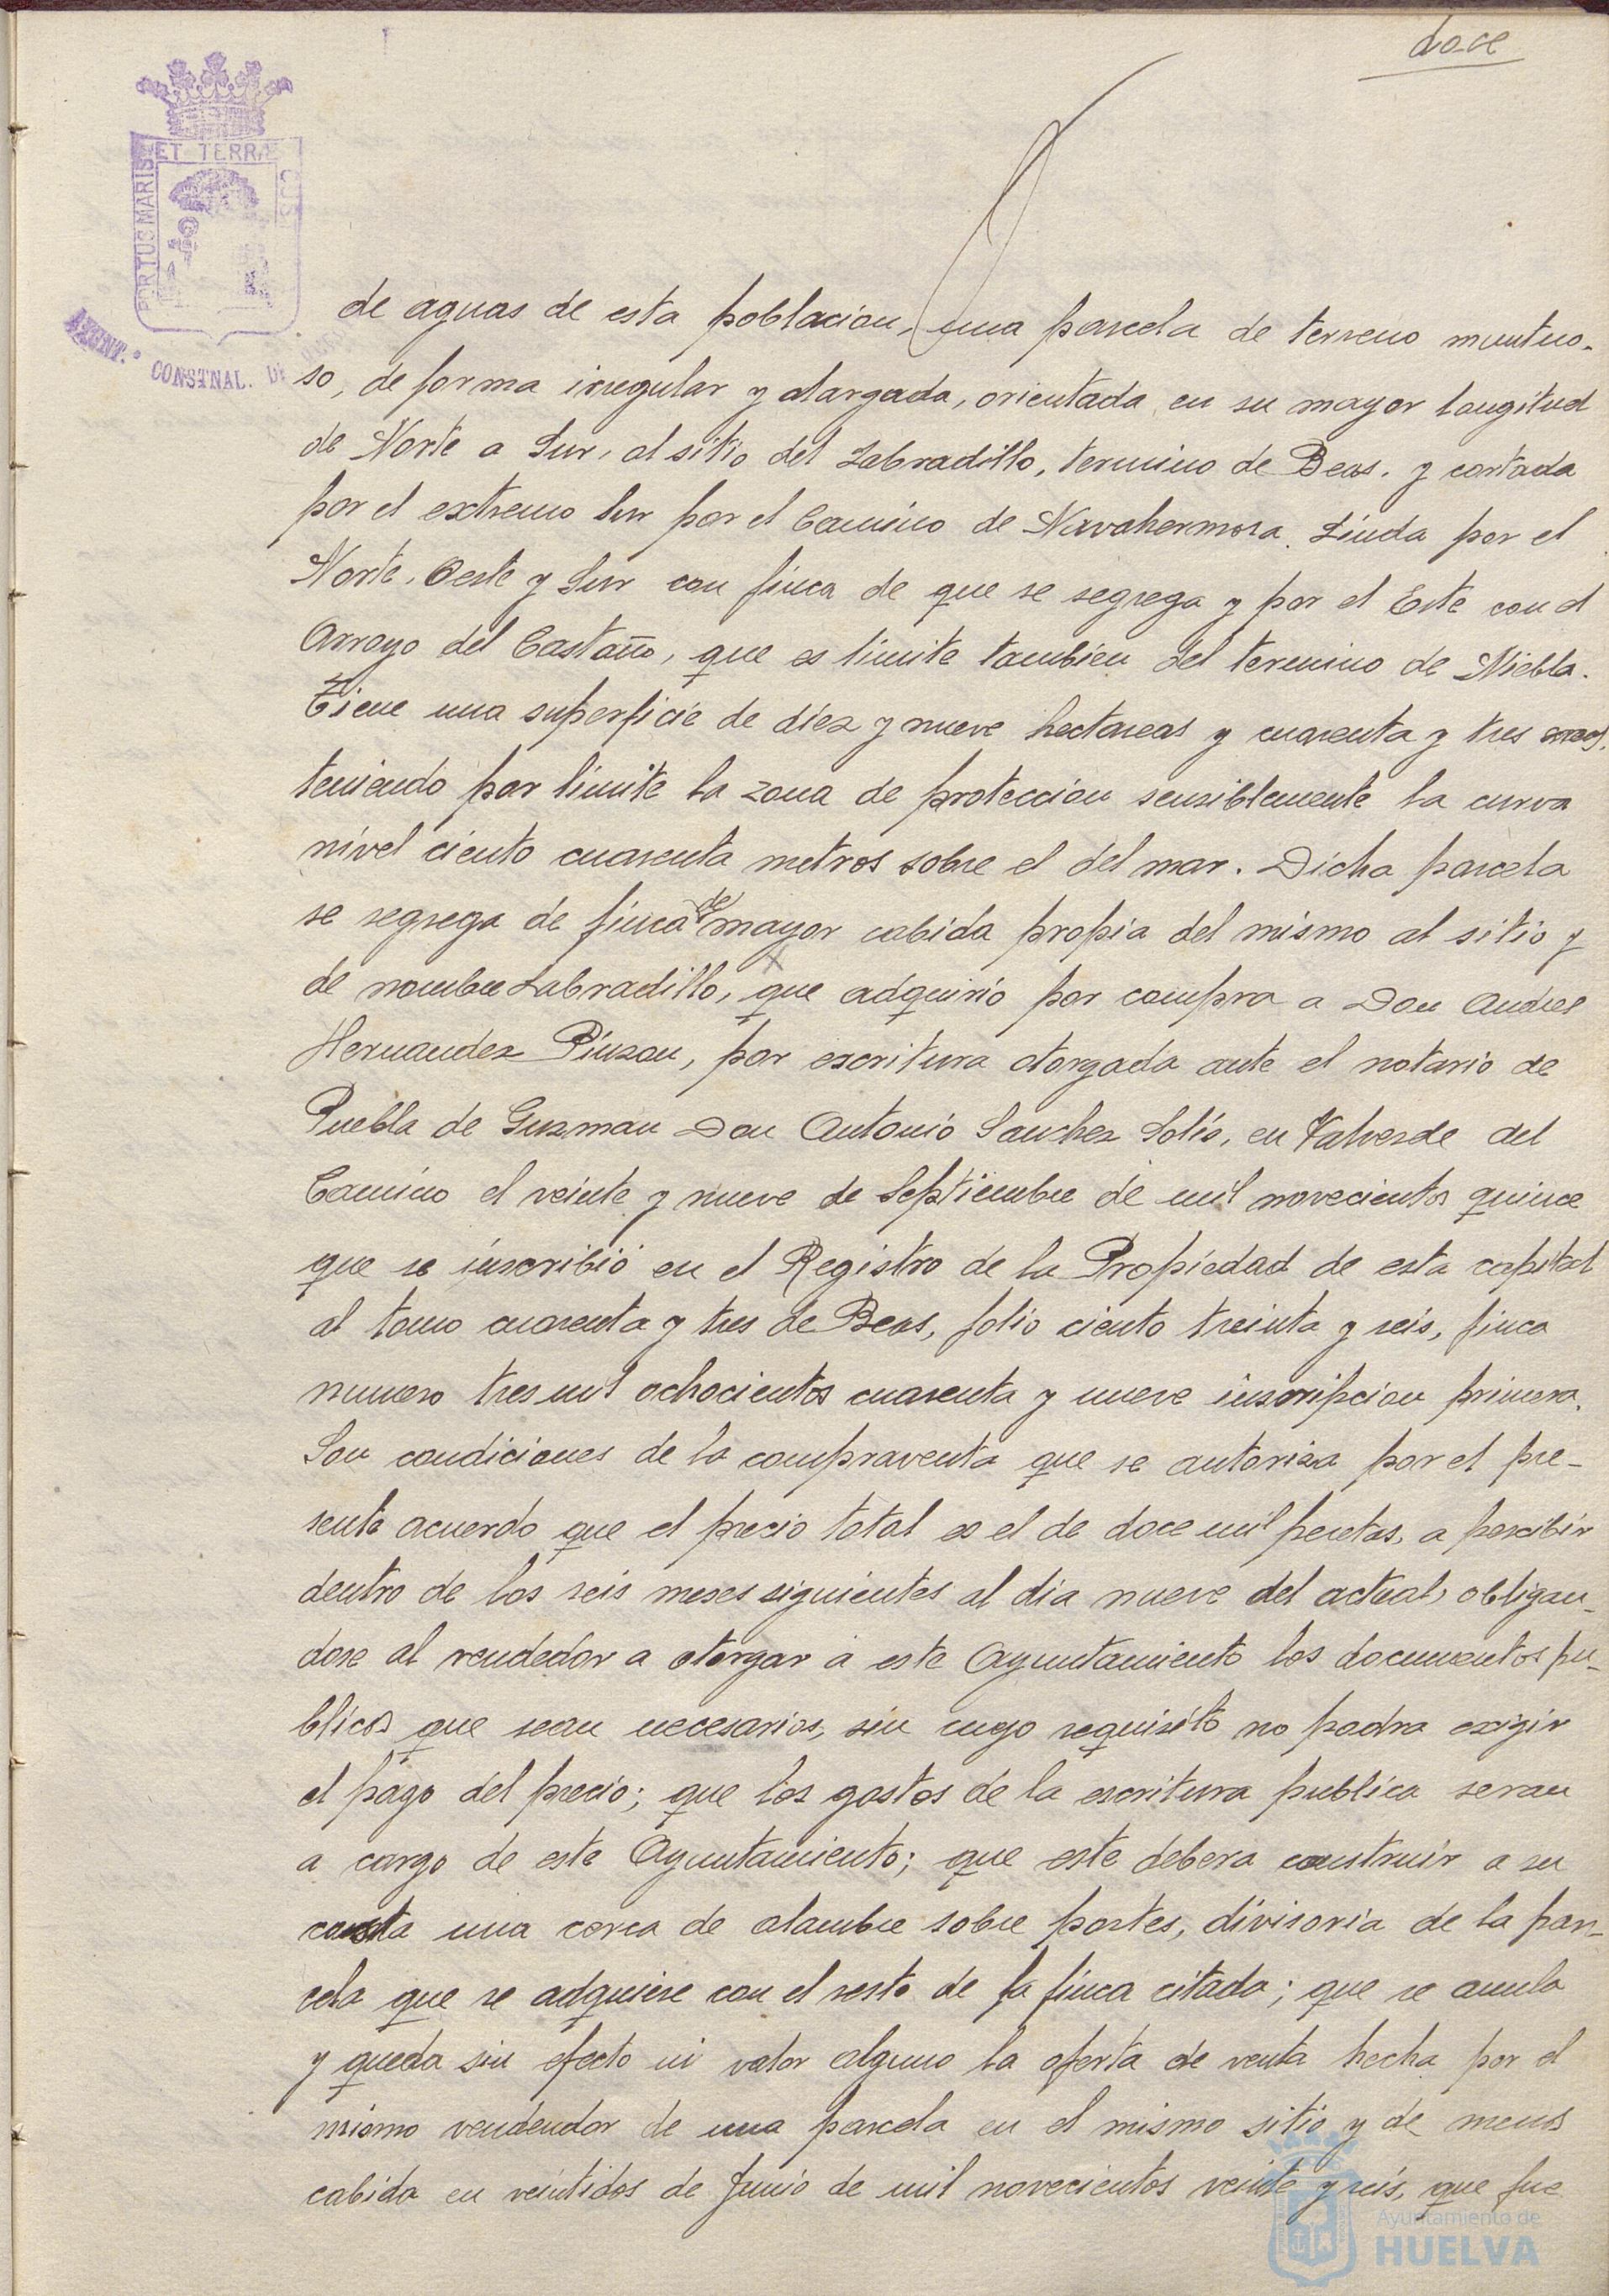 doce
ET TERRÆ
PORTUS MARIS
CUS
AYUNT.º CONSTNAL. DE
de aguas de esta poblacion, una parcela de terreno muntuo-
so, de forma irregular y alargada, orientada en su mayor longitud
de Norte a Sur, al sitio del Labradillo, termino de Beas, y cortada
por el extremo Sur por el Camino de Navahermosa. Linda por el
Norte, Oeste y Sur con finca de que se segrega y por el Este con el
Arroyo del Castaño, que es limite tambien del termino de Niebla.
Tiene una superficie de diez y nueve hectareas y cuarenta y tres areas,
teniendo por limite la zona de proteccion sensiblemente la curva
nivel ciento cuarenta metros sobre el del mar. Dicha parcela
se segrega de finca de mayor cabida propia del mismo al sitio y
de nombre Labradillo, que adquirió por compra a Don Andres
Hernandez Pinzon, por escritura otorgada ante el notario de
Puebla de Guzman Don Antonio Sanchez Solis, en Valverde del
Camino el veinte y nueve de Septiembre de mil novecientos quince
que se inscribió en el Registro de la Propiedad de esta capital
al tomo cuarenta y tres de Beas, folio ciento treinta y seis, finca
numero tres mil ochocientos cuarenta y nueve inscripcion primera.
Son condiciones de la compraventa que se autoriza por el pre-
sente acuerdo que el precio total es el de doce mil pesetas, a percibir
dentro de los seis meses siguientes al dia nueve del actual, obligan-
dose al vendedor a otorgar a este Ayuntamiento los documentos pu-
blicos que sean necesarios, sin cuyo requisito no podra exigir
el pago del precio; que los gastos de la escritura publica seran
a cargo de este Ayuntamiento; que este debera construir a su
costa una cerca de alambre sobre postes, divisoria de la par-
cela que se adquiere con el resto de la finca citada; que se anula
y queda sin efecto ni valor alguno la oferta de venta hecha por el
mismo vendendor de una parcela en el mismo sitio y de menos
cabida en veintidos de Junio de mil novecientos veinte y seis, que fue
Ayuntamiento de
HUELVA